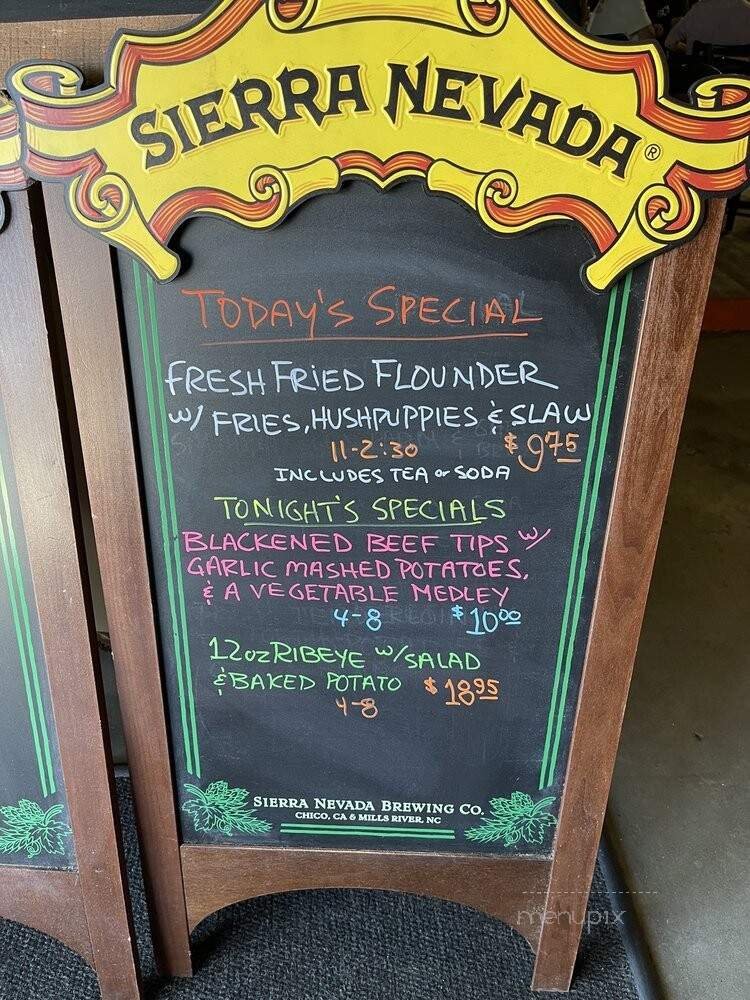 SIERRA NEVADA®
TODAY'S SPECIAL
FRESH FRIED FLOUNDER
W/ FRIES, HUSHPUPPIES & SLAW
11-2:30 $9.75
INCLUDES TEA or SODA
TONIGHT'S SPECIALS
BLACKENED BEEF TIPS W/
GARLIC MASHED POTATOES,
& A VEGETABLE MEDLEY
4-8 $10.00
12oz RIBEYE W/ SALAD
& BAKED POTATO $18.95
4-8
SIERRA NEVADA BREWING CO.
CHICO, CA & MILLS RIVER, NC
menupix